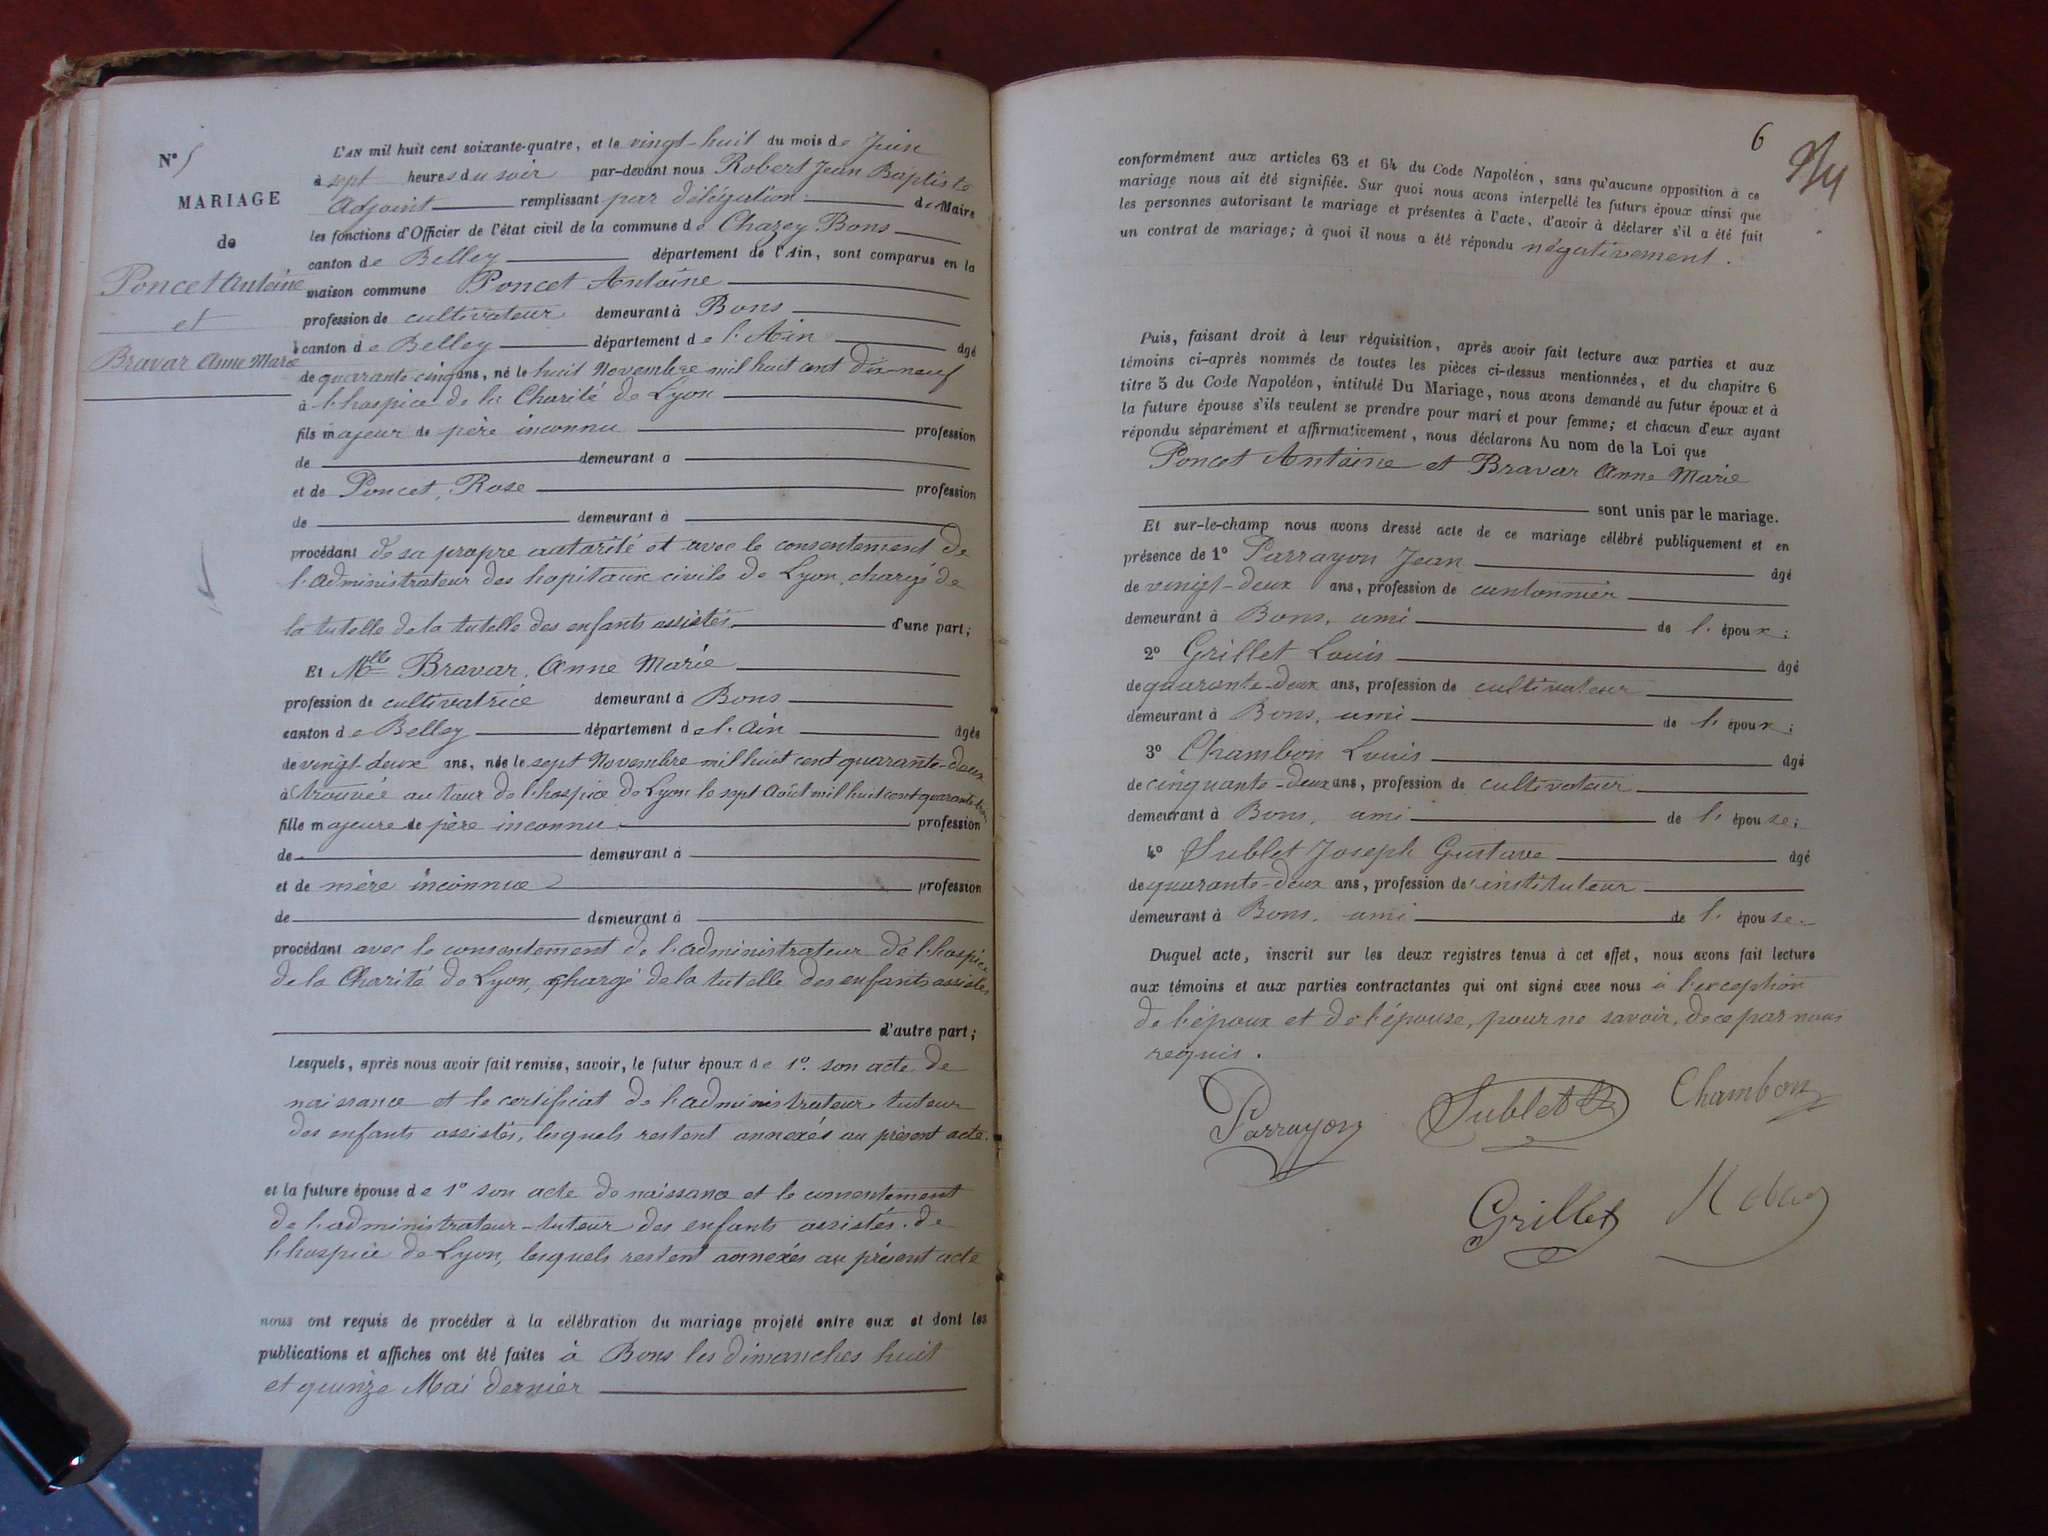 N° 5
MARIAGE
de
Poncet Antoine
et
Bravar Anne Marie
L'AN mil huit cent soixante-quatre, et le vingt-huit du mois de Juin
à sept heures du soir par-devant nous Robert Jean Baptiste
Adjoint remplissant par délégation de Maire
les fonctions d'Officier de l'état civil de la commune de Chazey Bons
canton de Belley département de l'Ain, sont comparus en la
maison commune Poncet Antoine
profession de cultivateur demeurant à Bons
canton de Belley département de l'Ain âgé
de quarante-cinq ans, né le huit Novembre mil huit cent dix-neuf
à l'hospice de la Charité de Lyon
fils majeur de père inconnu profession
de demeurant à
et de Poncet, Rose profession
de demeurant à
procédant de sa propre autorité et avec le consentement de
l'administrateur des hopitaux civils de Lyon, chargé de
la tutelle de la tutelle des enfants assistés d'une part;
Et Mlle Bravar, Anne Marie
profession de cultivatrice demeurant à Bons
canton de Belley département de l'Ain âgée
de vingt-deux ans, née le sept Novembre mil huit cent quarante-deux
à trouvée au tour de l'hospice de Lyon le sept Août mil huit cent quarante-trois
fille majeure de père inconnu profession
de demeurant à
et de mère inconnue profession
de demeurant à
procédant avec le consentement de l'administrateur de l'hospice
de la Charité de Lyon, chargé de la tutelle des enfants assistés
d'autre part;
Lesquels, après nous avoir fait remise, savoir, le futur époux de 1° son acte de
naissance et le certificat de l'administrateur tuteur
des enfants assistés, lesquels restent annexés au présent acte.
et la future épouse de 1° son acte de naissance et le consentement
de l'administrateur-tuteur des enfants assistés de
l'hospice de Lyon, lesquels restent annexés au présent acte
nous ont requis de procéder à la célébration du mariage projeté entre eux et dont les
publications et affiches ont été faites à Bons les dimanches huit
et quinze Mai dernier
6
conformément aux articles 63 et 64 du Code Napoléon, sans qu'aucune opposition à ce
mariage nous ait été signifiée. Sur quoi nous avons interpellé les futurs époux ainsi que
les personnes autorisant le mariage et présentes à l'acte, d'avoir à déclarer s'il a été fait
un contrat de mariage; à quoi il nous a été répondu négativement.
Puis, faisant droit à leur réquisition, après avoir fait lecture aux parties et aux
témoins ci-après nommés de toutes les pièces ci-dessus mentionnées, et du chapitre 6
titre 5 du Code Napoléon, intitulé Du Mariage, nous avons demandé au futur époux et à
la future épouse s'ils veulent se prendre pour mari et pour femme; et chacun d'eux ayant
répondu séparément et affirmativement, nous déclarons Au nom de la Loi que
Poncet Antoine et Bravar Anne Marie
sont unis par le mariage.
Et sur-le-champ nous avons dressé acte de ce mariage célébré publiquement et en
présence de 1° Parrayon Jean âgé
de vingt-deux ans, profession de cantonnier
demeurant à Bons, ami de l'époux;
2° Grillet Louis âgé
de quarante-deux ans, profession de cultivateur
demeurant à Bons, ami de l'époux;
3° Chambon Louis âgé
de cinquante-deux ans, profession de cultivateur
demeurant à Bons, ami de l'épouse;
4° Sublet Joseph Gustave âgé
de quarante-deux ans, profession d'instituteur
demeurant à Bons, ami de l'épouse.
Duquel acte, inscrit sur les deux registres tenus à cet effet, nous avons fait lecture
aux témoins et aux parties contractantes qui ont signé avec nous à l'exception
de l'époux et de l'épouse, pour ne savoir, de ce par nous
requis.
Parrayon Sublet Chambon
Grillet